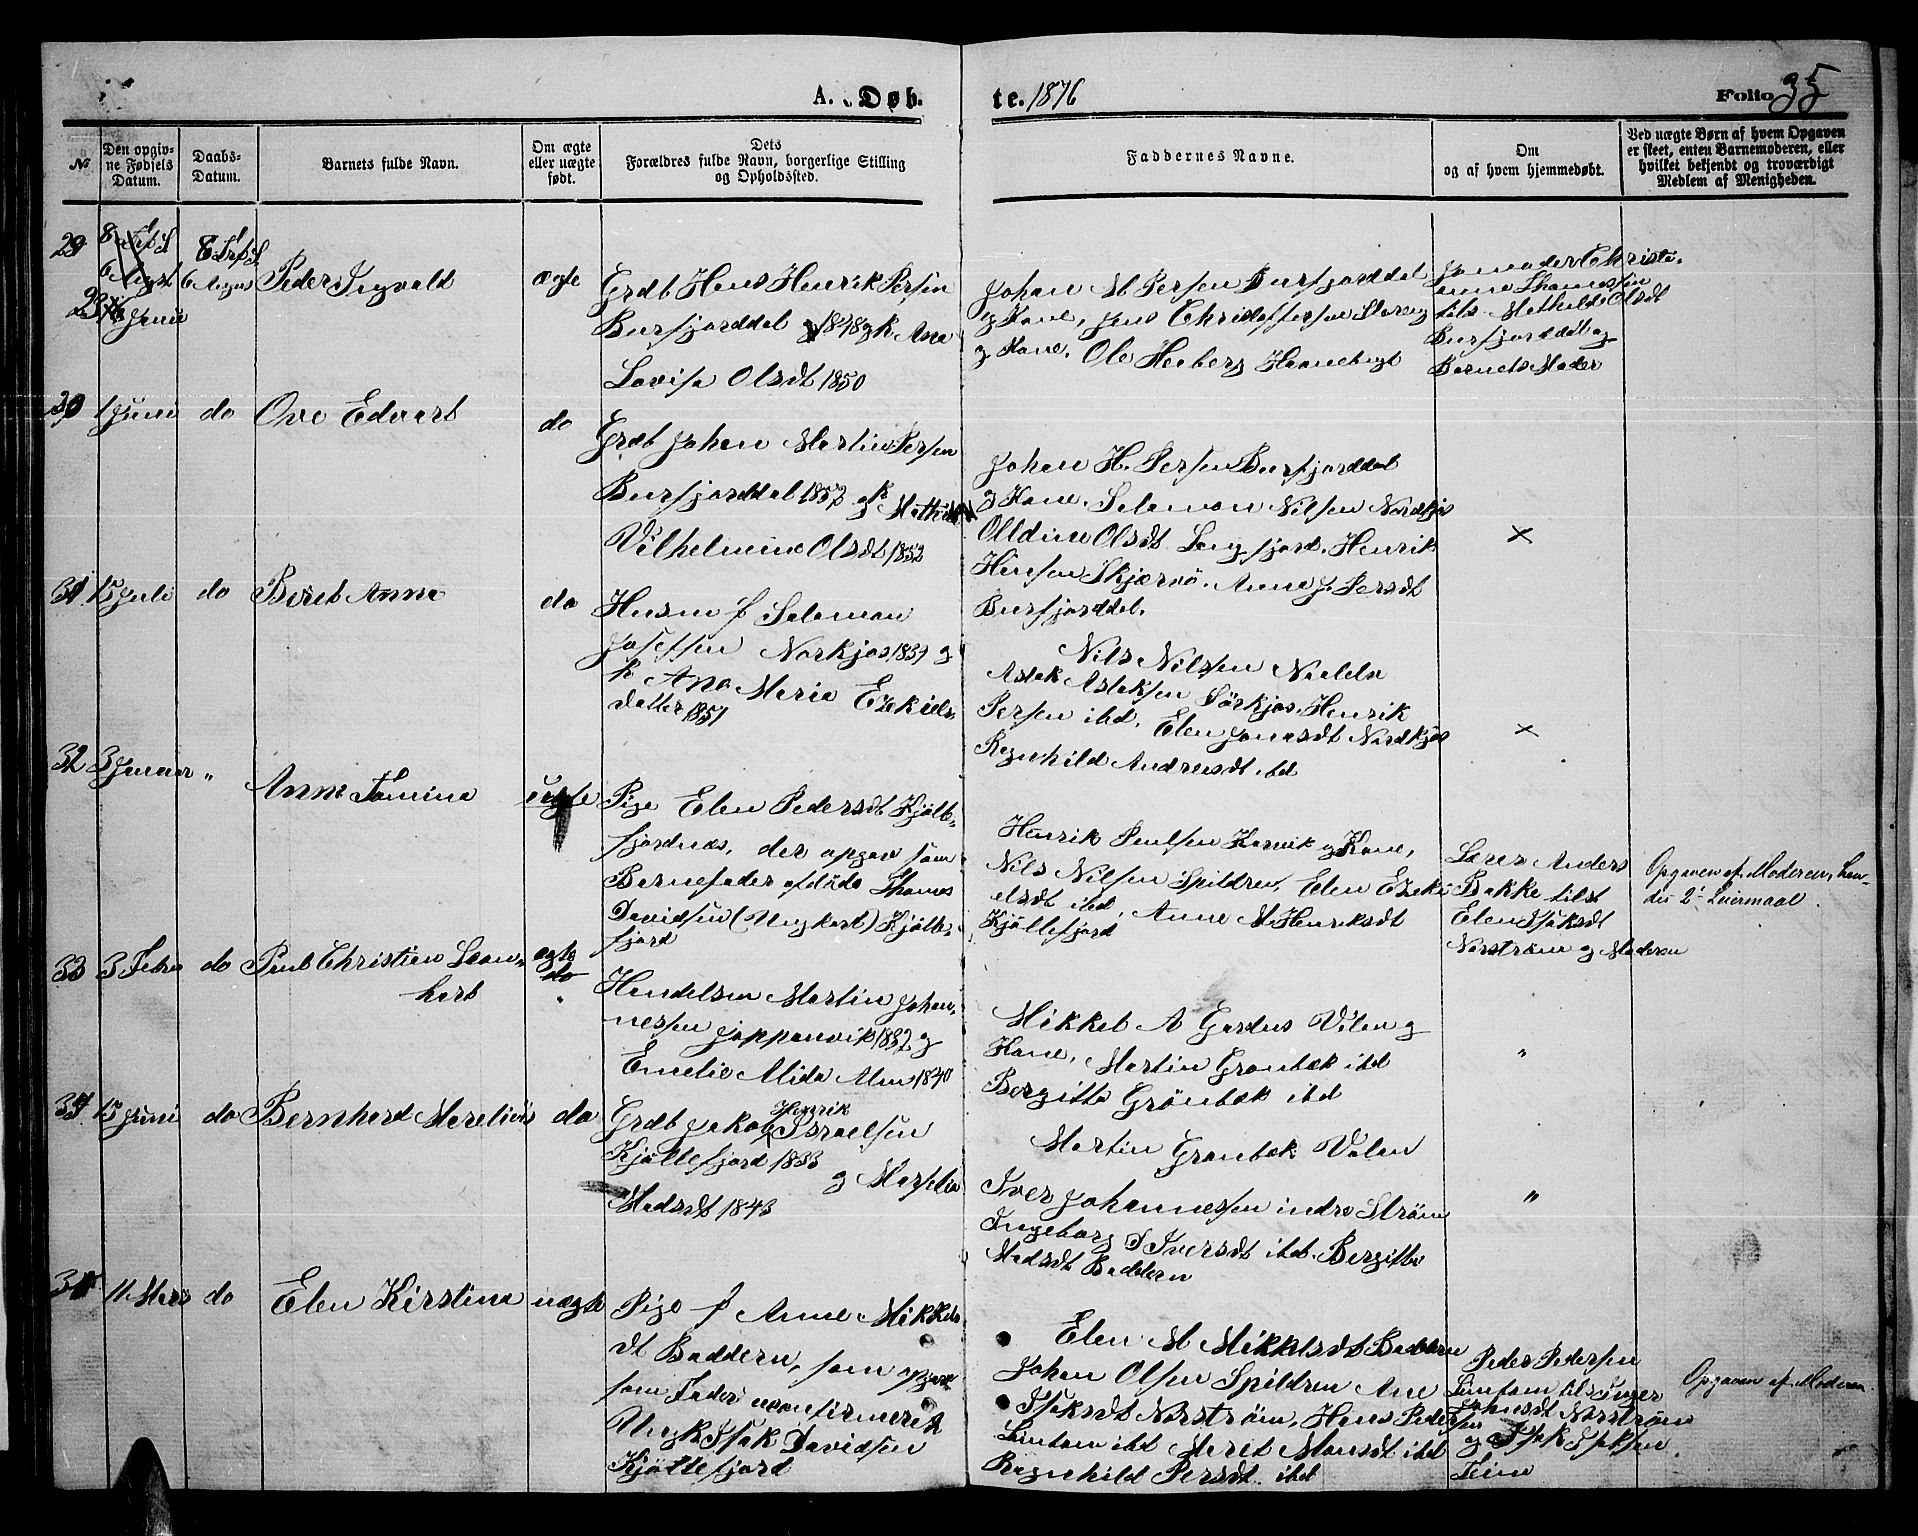 A. Døb-
te. 1876
Folio 35
№
Den opgiv-
ne Fødsels
Datum.
Daabs-
Datum.
Barnets fulde Navn.
Om ægte
eller uægte
født.
Dets
Forældres fulde Navn, borgerlige Stilling
og Opholdssted.
Faddernes Navne.
Om
og af hvem hjemmedøbt.
Ved uægte Børn af hvem Opgaven
er skeet, enten Barnemoderen, eller
hvilket bekjendt og troværdigt
Medlem af Menigheden.
29
Juni
6 Augus
Peder Ingvald
ægte
Grdb Hans Henrik Persen
Burfjorddal 1848 og k Ane
Lovisa Olsdt 1850
Johan M Persen Burfjorddal
og Kone, Jens Christoffersen Storeng
og Kone, Ole Heiberg Hannebugt
Jormoder Christi-
anne Thomassen
tils. Mathilde Olsdt
Burfjorddal og
Barnets Moder
30
1 Juni
do
Ove Edvart
do
Grdb Johan Martin Persen
Burfjorddal 1852 og k Mathilde
Vilhelmine Olsdt 1852
Johan H. Persen Burfjorddal
og Kone. Salamon Nilsen Nordkjos
Olldine Olsdt Langfjord, Henrik
Hansen Skjærvö. Anne J. Persdt
Burfjorddal.
×
31
15 Juli
do
Beret Anna
do
Husm f Salamon
Josefsen Norkjos 1839 og
k Ane Maria Ezekiels-
datter 1851
Nils Nilsen Naviln
Aslak Aslaksen Sörkjos, Henrik
Persen ibd, Elen Jonasdt Nordkjos
Ragnhild Andreasdt ibd
×
32
3 Januar
"
Anne Tomina
uægte
Pige Elen Pedersdt Kjölle-
fjordnæs, der opgav som
Barnefader afdöde Thomas
Davidsen (Ungkarl) Kjölle-
fjord
Henrik Paulsen Karvik og Kone,
Nils Nilsen Spildren, Elen Ezeki-
elsdt ibd, Anne M Henriksdt
Kjöllefjord
Lærer Anders
Bakke tilst
Elen Isaksdt
Norström og Moderen
Opgaven af Moderen, hen-
des 2' Leiermaal.
33
3 Febru
do
Paul Christian Leon-
hart
ægte
do
Handelsm Martin Johan-
nesen Joppanvik 1832 og
Emelie Alida Alm 1840
Mikkel A Gardus Valen og
Kone, Martin Grønbæk ibd
Bergitte Grönbæk ibd
"
34
15 Juni
do
Bernhard Marelius
do
Henrik
Grdb Jakob Israelsen
Kjöllefjord 1833
og Marselie
Madsdt 1843
Martin Grønbæk Valen
Iver Johannesen indre Ström
Ingeborg D Iversdt ibd. Bergitte
Madsdt Baddern
"
35
11 Mars
do
Elen Kirstina
uægte
Pige f Anne Mikkels
dt Baddern, som opgav
som Fader ukonfirmeret
Ungk Isak Davidsen
Kjöllefjord
Elen M Mikkelsdt Baddern
Johan Olsen Spildren Ane
Isaksdt Norström, Hans Pedersen
Lintam ibd Marit Monsdt ibd
Ragnhild Persdt. ibd
Peder Pedersen
Lintam tils Inger
Johnsdt Norström
og Isak Isaksen
Opgaven af Moderen.